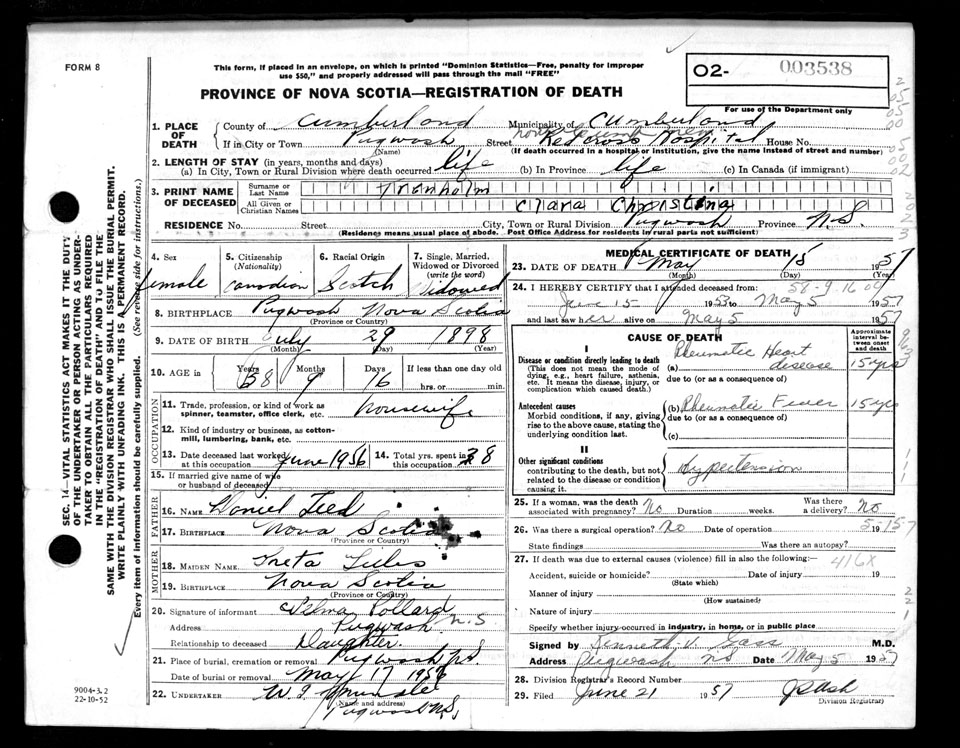 FORM 8
This form, if placed in an envelope, on which is printed "Dominion Statistics—Free, penalty for improper
use $50," and properly addressed will pass through the mail "FREE"
PROVINCE OF NOVA SCOTIA—REGISTRATION OF DEATH
02- 003538
For use of the Department only
1. PLACE OF DEATH County of Cumberland Municipality of Cumberland
If in City or Town Pugwash Street Red Cross Hospital House No.
(Name) (If death occurred in a hospital or institution, give the name instead of street and number)
2. LENGTH OF STAY (in years, months and days)
(a) In City, Town or Rural Division where death occurred life (b) In Province life (c) In Canada (if immigrant)
3. PRINT NAME OF DECEASED Surname or Last Name Trenholm
All Given or Christian Names Clara Christina
RESIDENCE No. Street City, Town or Rural Division Pugwash Province N.S.
(Residence means usual place of abode. Post Office Address for residents by rural parts not sufficient)
4. Sex female
5. Citizenship (Nationality) Canadian
6. Racial Origin Scotch
7. Single, Married, Widowed or Divorced (write the word) Widowed
8. BIRTHPLACE Pugwash Nova Scotia
(Province or Country)
9. DATE OF BIRTH July 29 1898
(Month) (Day) (Year)
10. AGE in Years 58 Months 9 Days 16 If less than one day old
hrs. or min.
OCCUPATION
11. Trade, profession, or kind of work as spinner, teamster, office clerk, etc. housewife
12. Kind of industry or business, as cotton-mill, lumbering, bank, etc.
13. Date deceased last worked at this occupation June 1956 14. Total yrs. spent in this occupation 38
15. If married give name of wife or husband of deceased
FATHER
16. NAME Daniel
17. BIRTHPLACE Nova Scotia
(Province or Country)
MOTHER
18. MAIDEN NAME
19. BIRTHPLACE Nova Scotia
(Province or Country)
20. Signature of informant Velma Pollard
Address Pugwash N.S
Relationship to deceased Daughter
21. Place of burial, cremation or removal Pugwash N.S.
Date of burial or removal May 17
22. UNDERTAKER
(Name and address)
Pugwash N.S.
MEDICAL CERTIFICATE OF DEATH
23. DATE OF DEATH May 15 1957
(Month) (Day) (Year)
58-9 16
24. I HEREBY CERTIFY that I attended deceased from:
June 15 1953 to May 5 1957
and last saw her alive on May 5 1957
CAUSE OF DEATH
Approximate interval between onset and death
I
Disease or condition directly leading to death
(This does not mean the mode of dying, e.g., heart failure, asthenia, etc. It means the disease, injury, or complication which caused death.)
(a) Rheumatic Heart disease 15 yrs
due to (or as a consequence of)
Antecedent causes
Morbid conditions, if any, giving rise to the above cause, stating the underlying condition last.
(b) Rheumatic Fever 15 yrs
due to (or as a consequence of)
(c)
II
Other significant conditions
contributing to the death, but not related to the disease or condition causing it.
Hypertension
25. If a woman, was the death associated with pregnancy? No Duration weeks. Was there a delivery? No
26. Was there a surgical operation? No Date of operation 19
5-15-7
State findings Was there an autopsy?
27. If death was due to external causes (violence) fill in also the following:
416X
Accident, suicide or homicide? Date of injury 19
(State which)
Manner of injury
(How sustained)
Nature of injury
Specify whether injury occurred in industry, in home, or in public place
Signed by Kenneth V. Gass M.D.
Address Pugwash NS Date May 5 1957
28. Division Registrar's Record Number
29. Filed June 21 1957
Division Registrar)
SEC. 14—VITAL STATISTICS ACT MAKES IT THE DUTY
OF THE UNDERTAKER OR PERSON ACTING AS UNDER-
TAKER TO OBTAIN ALL THE PARTICULARS REQUIRED
IN THE "REGISTRATION OF DEATH" AND TO FILE THE
SAME WITH THE DIVISION REGISTRAR WHO SHALL ISSUE THE BURIAL PERMIT.
WRITE PLAINLY WITH UNFADING INK. THIS IS A PERMANENT RECORD.
Every item of information should be carefully supplied. (See reverse side for instructions.)
9004-3.2
22-10-52